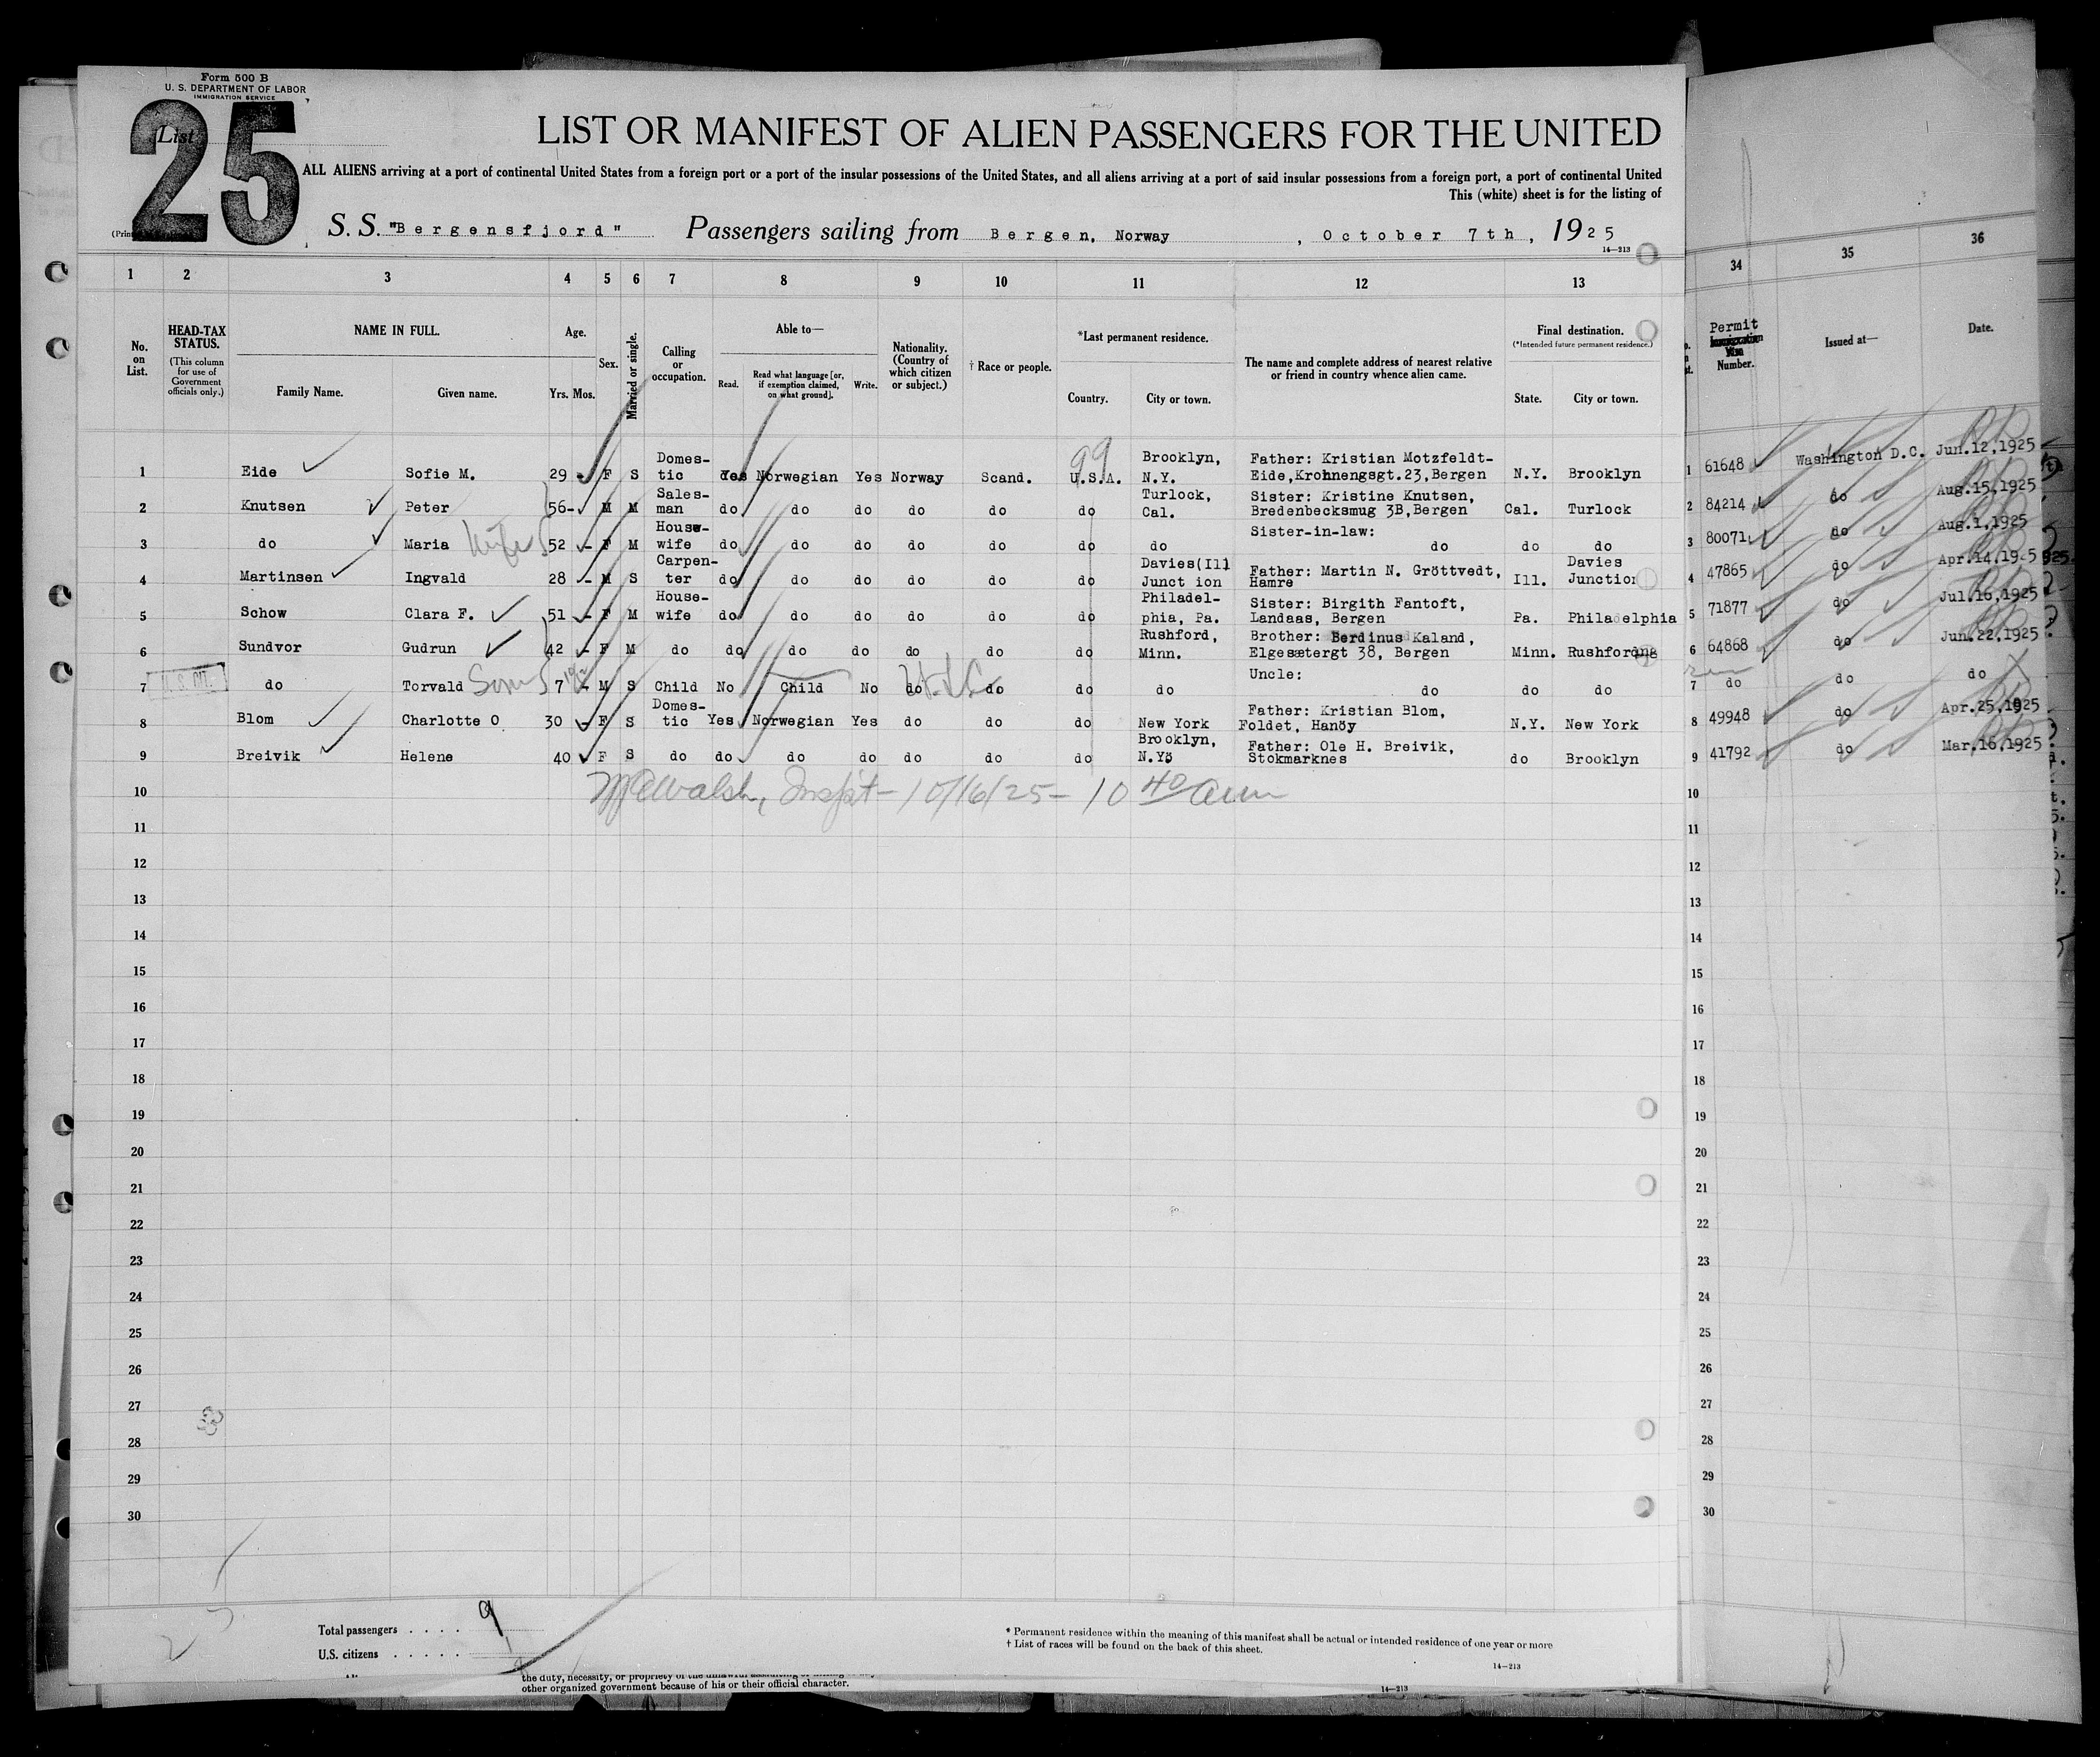 Form 500 B
U. S. DEPARTMENT OF LABOR
IMMIGRATION SERVICE
List
25
LIST OR MANIFEST OF ALIEN PASSENGERS FOR THE UNITED
ALL ALIENS arriving at a port of continental United States from a foreign port or a port of the insular possessions of the United States, and all aliens arriving at a port of said insular possessions from a foreign port, a port of continental United
This (white) sheet is for the listing of
S. S. "Bergensfjord" Passengers sailing from Bergen, Norway, October 7th, 1925
14—213
1 2 3 4 5 6 7 8 9 10 11 12 13 34 35 36
No. on List.
HEAD-TAX STATUS.
(This column for use of Government officials only.)
NAME IN FULL.
Family Name. Given name.
Age.
Yrs. Mos.
Sex.
Married or single.
Calling or occupation.
Able to—
Read. Read what language [or, if exemption claimed, on what ground]. Write.
Nationality. (Country of which citizen or subject.)
† Race or people.
*Last permanent residence.
Country. City or town.
The name and complete address of nearest relative or friend in country whence alien came.
Final destination.
(*Intended future permanent residence.)
State. City or town.
Permit
Number.
Issued at—
Date.
1 Eide Sofie M. 29 F S Domes-tic Yes Norwegian Yes Norway Scand. U.S.A. Brooklyn, N.Y. Father: Kristian Motzfeldt-Eide, Krohnengsgt.23, Bergen N.Y. Brooklyn 1 61648 Washington D.C. Jun.12,1925
99
2 Knutsen Peter 56 M M Sales-man do do do do do do Turlock, Cal. Sister: Kristine Knutsen, Bredenbecksmug 3B, Bergen Cal. Turlock 2 84214 do Aug.15,1925
3 do Maria wife 52 F M House-wife do do do do do do do Sister-in-law: do do do 3 80071 do Aug.1,1925
4 Martinsen Ingvald 28 M S Carpen-ter do do do do do do Davies(Ill Junction Father: Martin N. Gröttvedt, Hamre Ill. Davies Junction 4 47865 do Apr.14,19-5
5 Schow Clara F. 51 F M House-wife do do do do do do Philadel-phia, Pa. Sister: Birgith Fantoft, Landaas, Bergen Pa. Philadelphia 5 71877 do Jul.16,1925
6 Sundvor Gudrun 42 F M do do do do do do do Rushford, Minn. Brother: Berdinus Kaland, Elgesætergt 38, Bergen Minn. Rushford 6 64868 do Jun.22,1925
7 do Torvald Son 7 M S Child No Child No do do do do Uncle: do do do 7 do do do
8 Blom Charlotte O 30 F S Domes-tic Yes Norwegian Yes do do do New York Father: Kristian Blom, Foldet, Hanöy N.Y. New York 8 49948 do Apr.25,1925
9 Breivik Helene 40 F S do do do do do do do Brooklyn, N.Y. Father: Ole H. Breivik, Stokmarknes do Brooklyn 9 41792 do Mar.16,1925
10 10
11 11
12 12
13 13
14 14
15 15
16 16
17 17
18 18
19 19
20 20
21 21
22 22
23 23
24 24
25 25
26 26
27 27
28 28
29 29
30 30
Walsh, Inspt- 10/16/25- 10 40 am
Total passengers . . . . 9
U.S. citizens . . . . .
* Permanent residence within the meaning of this manifest shall be actual or intended residence of one year or more
† List of races will be found on the back of this sheet.
14—213
other organized government because of his or their official character.
14—213